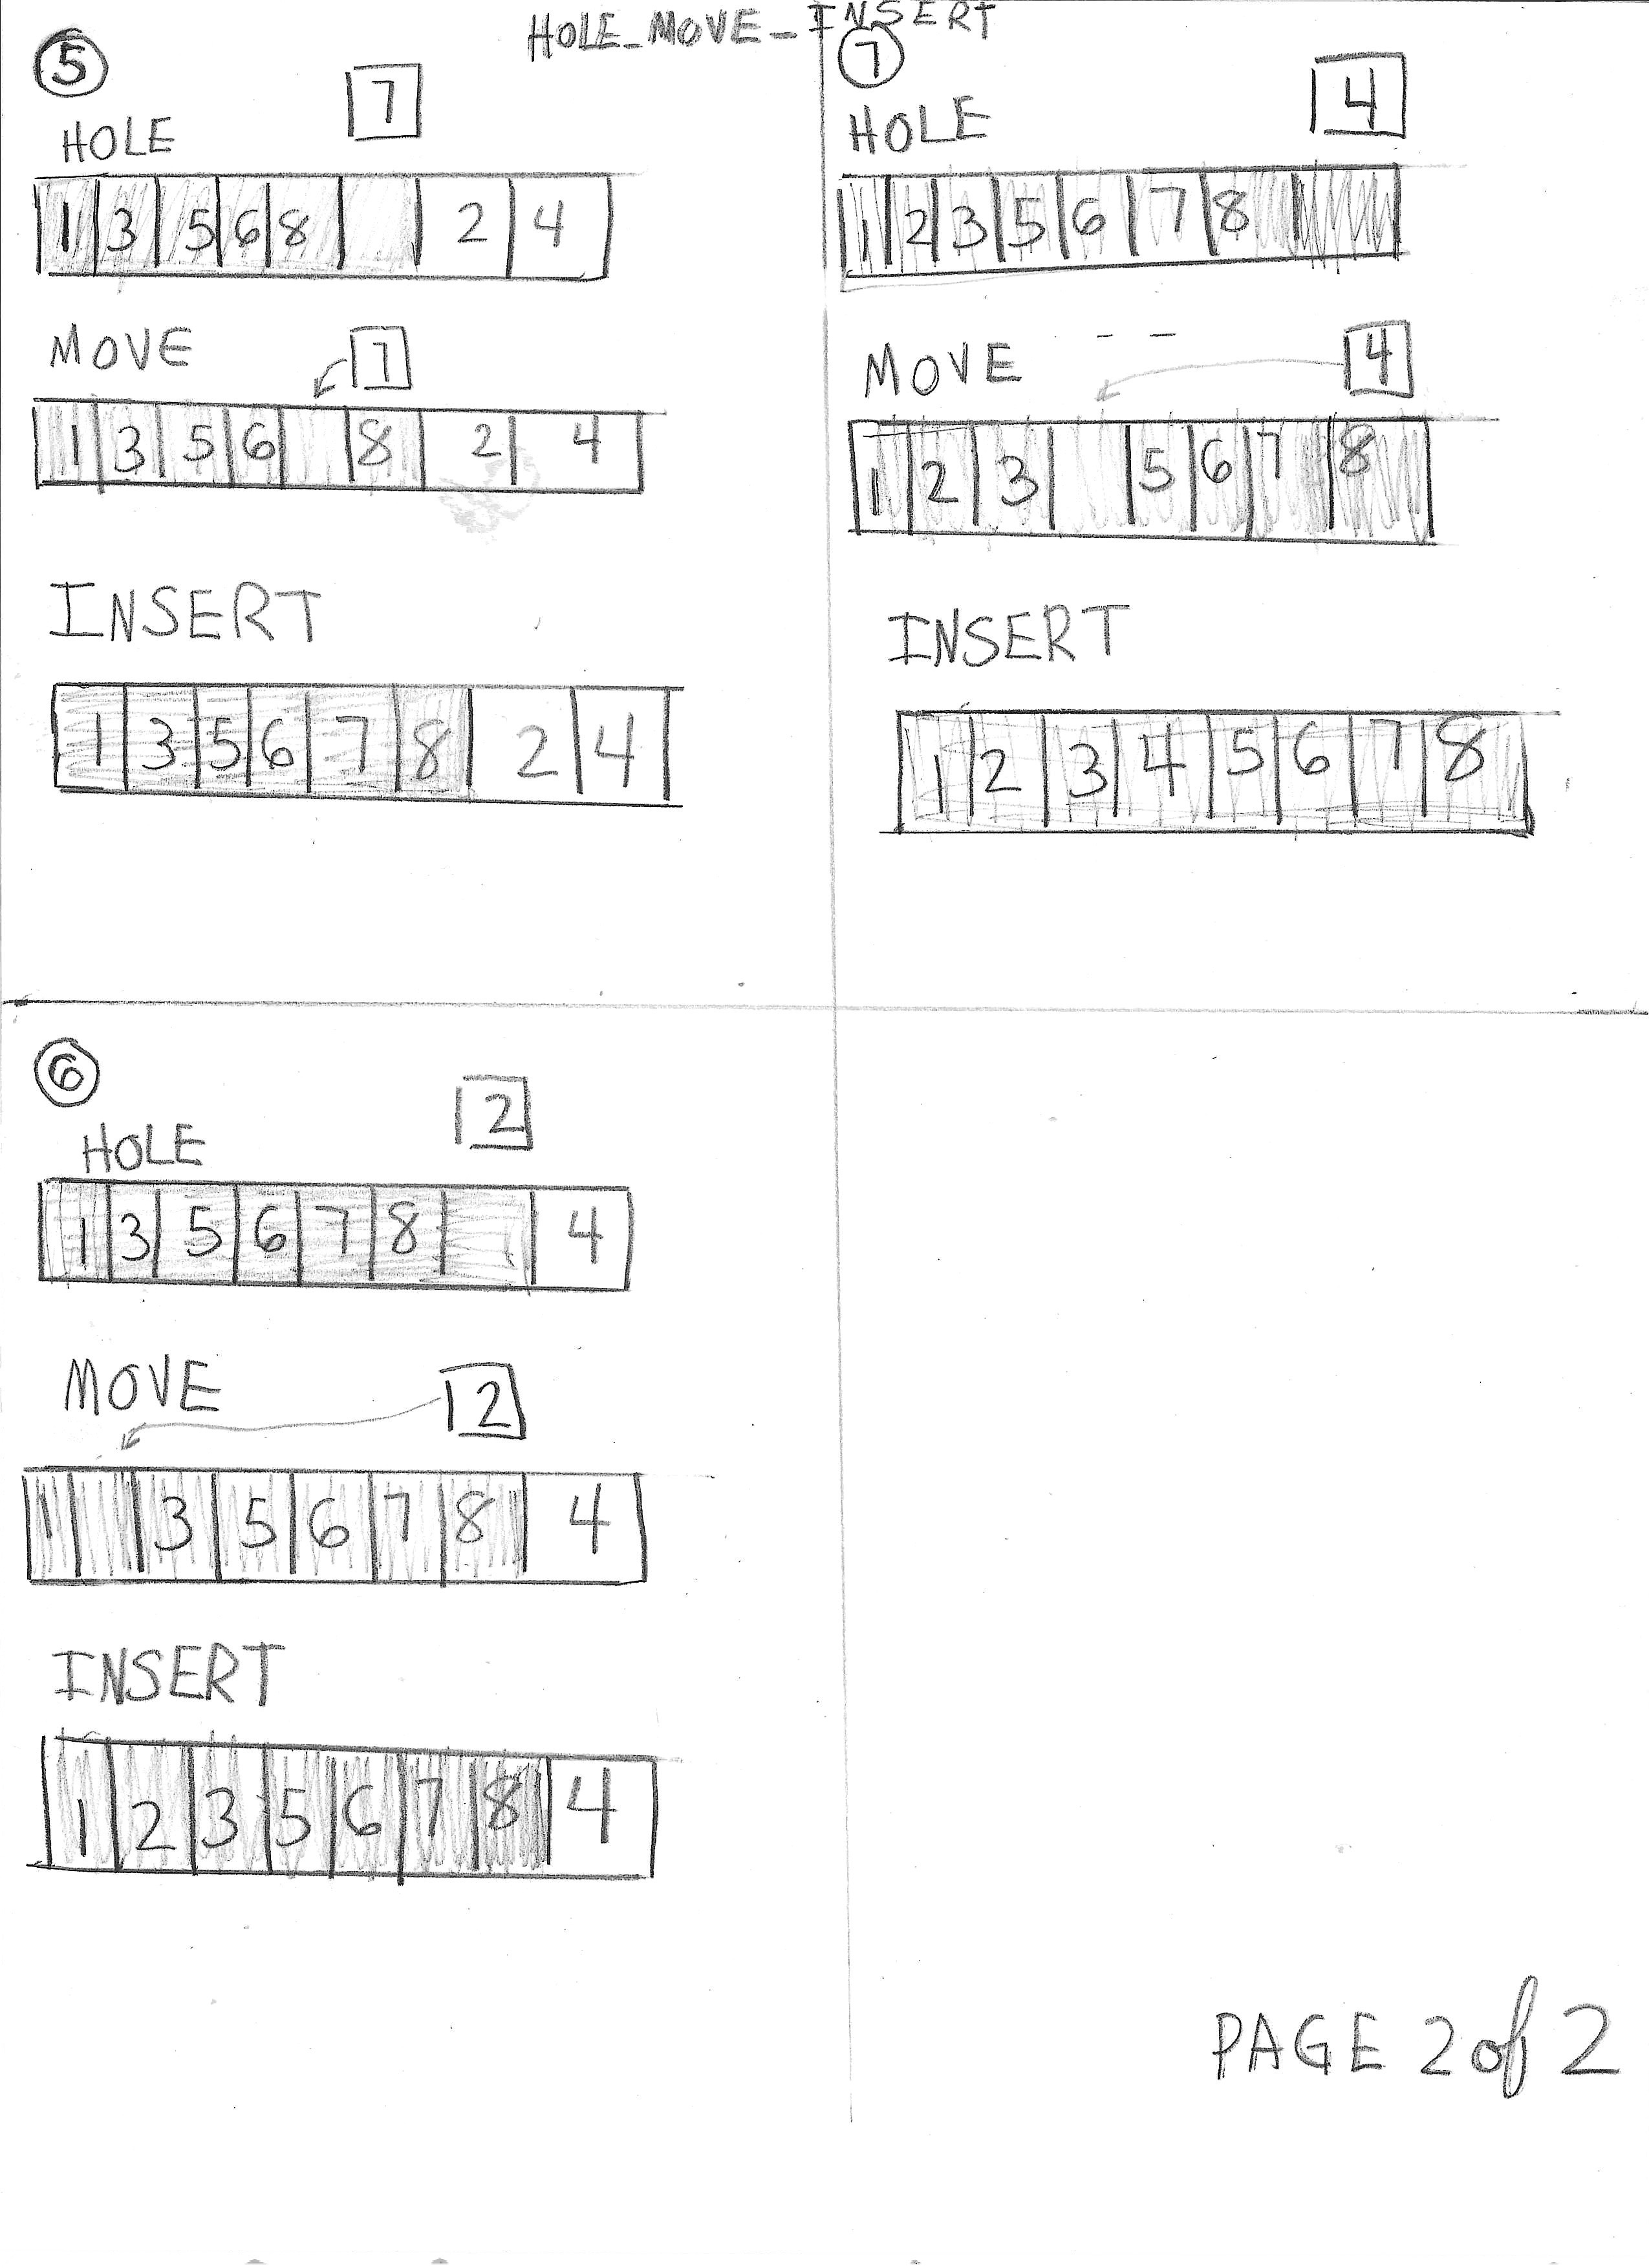 HOLE_MOVE_INSERT
5
7
HOLE
1 3 5 6 8 2 4
MOVE
7
1 3 5 6 8 2 4
INSERT
1 3 5 6 7 8 2 4
7
4
HOLE
1 2 3 5 6 7 8
MOVE
4
1 2 3 5 6 7 8
INSERT
1 2 3 4 5 6 7 8
6
2
HOLE
1 3 5 6 7 8 4
MOVE
2
1 3 5 6 7 8 4
INSERT
1 2 3 5 6 7 8 4
PAGE 2 of 2